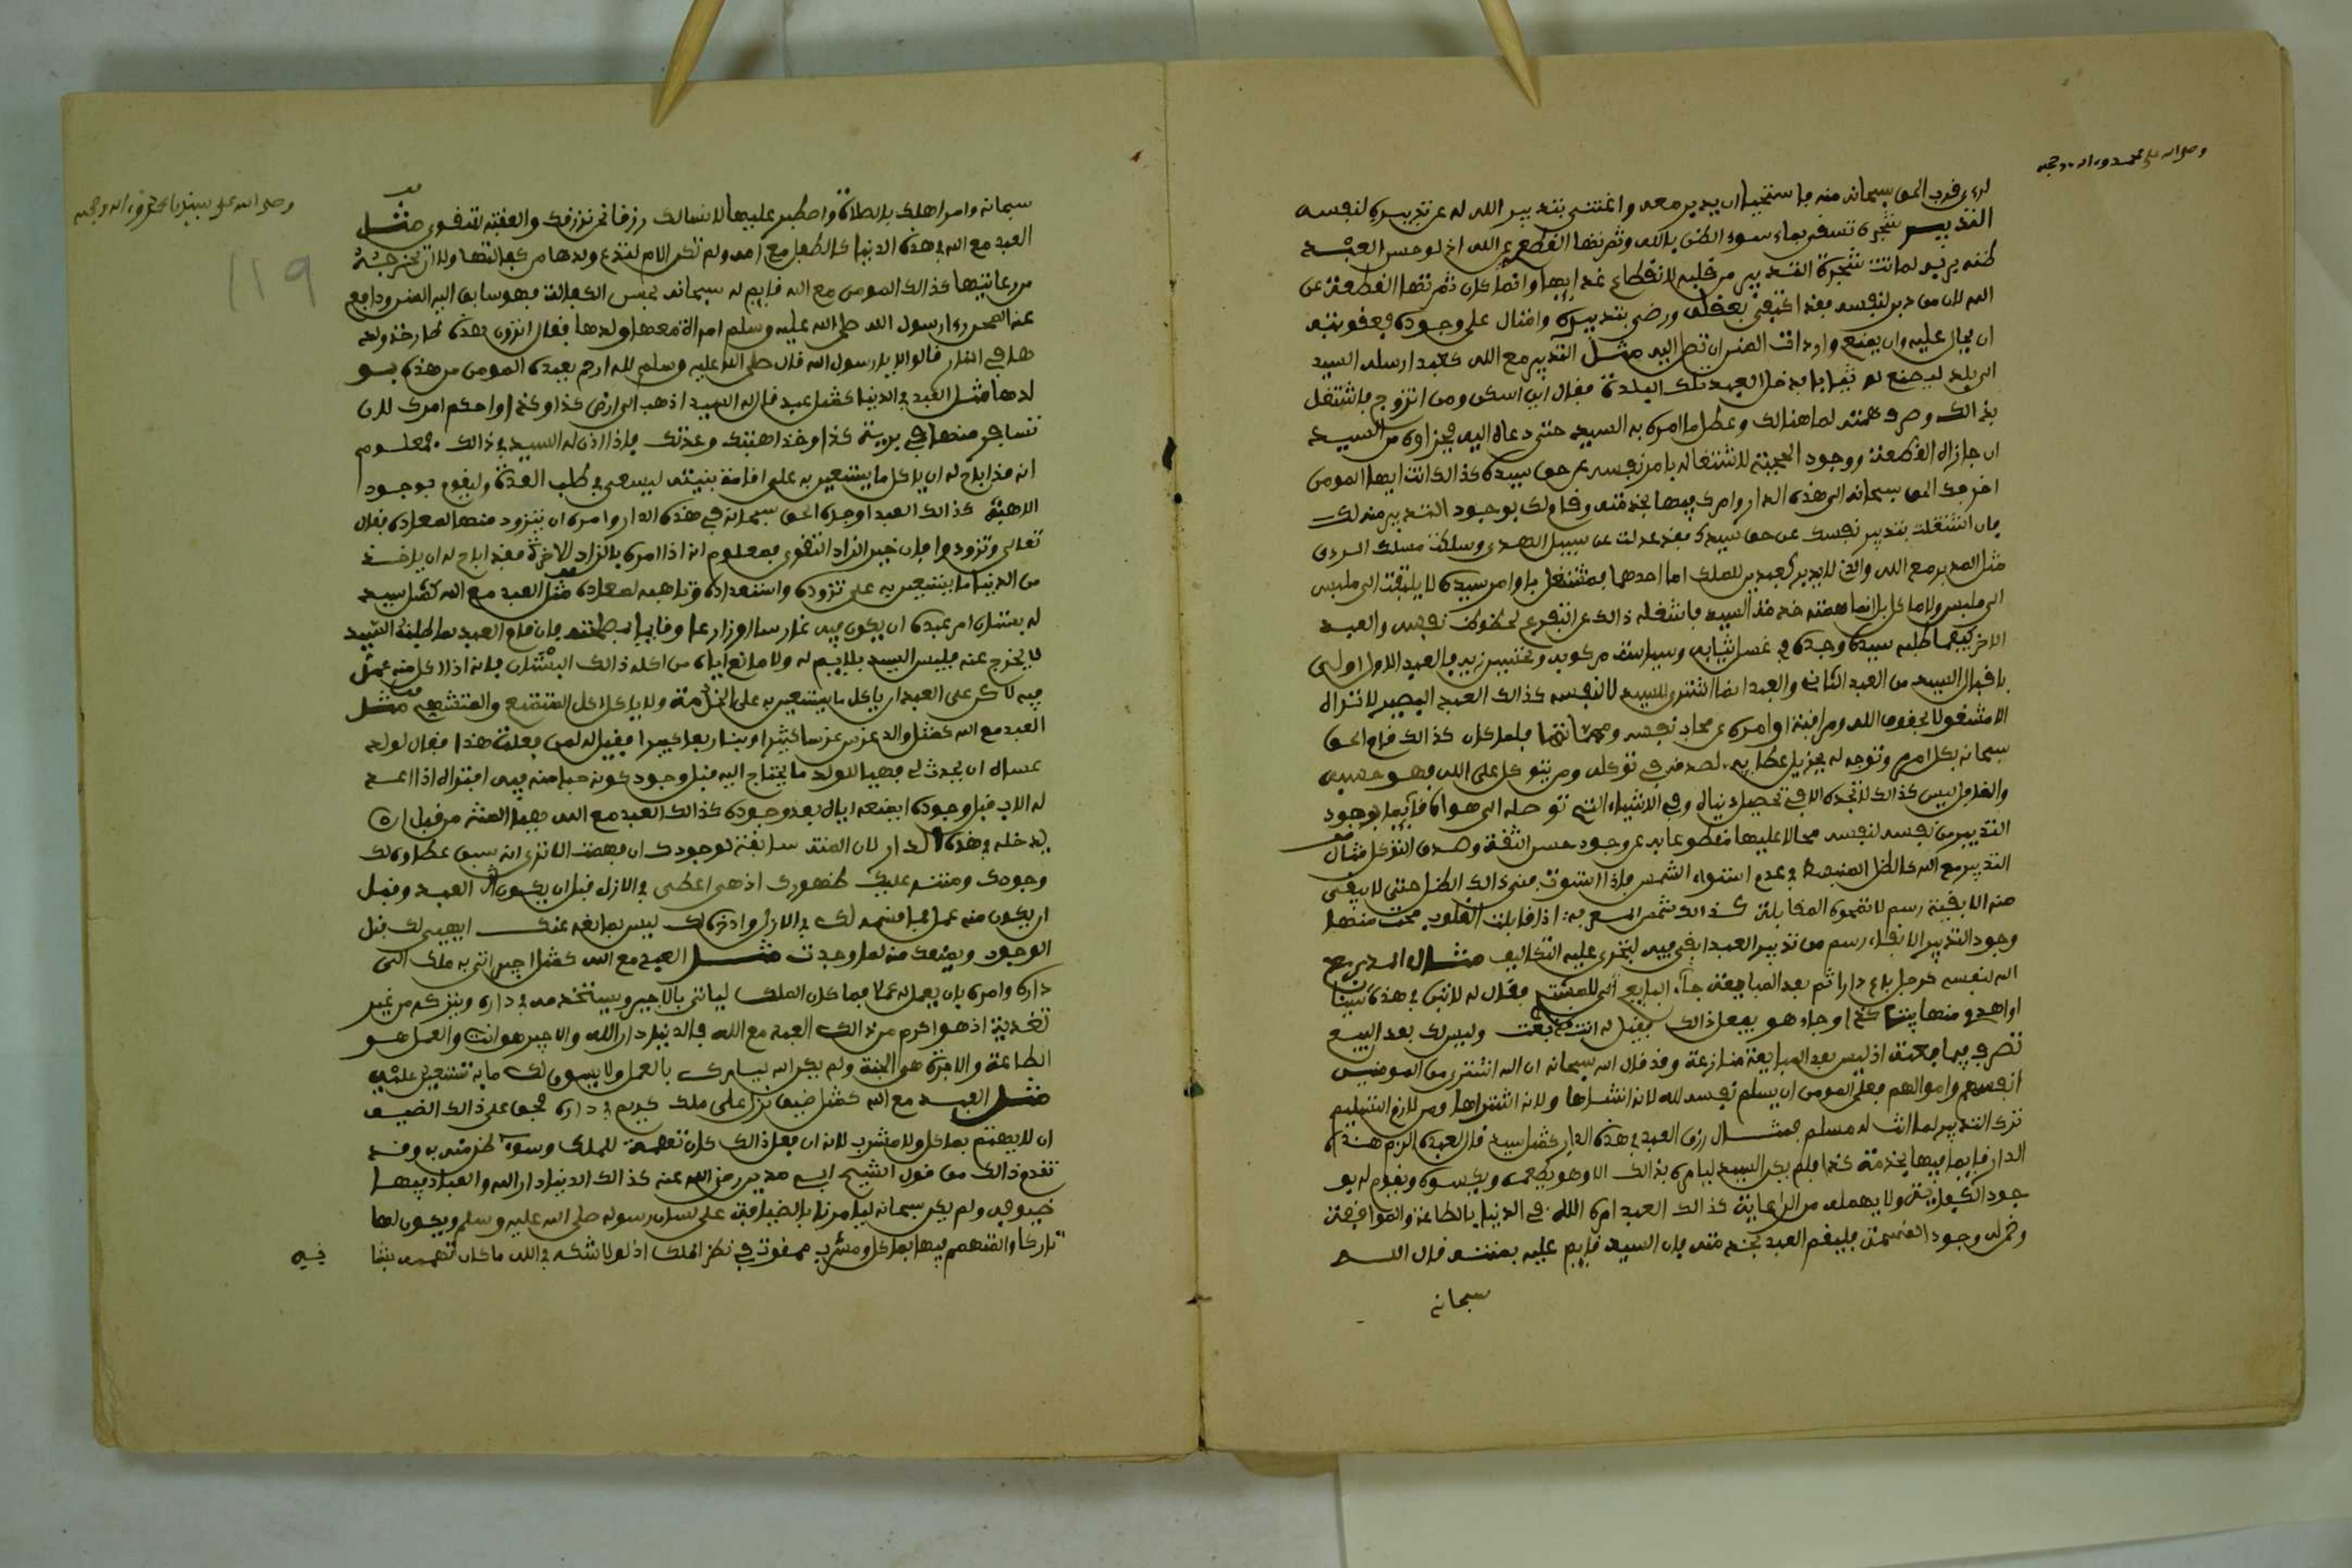 وصلى الله على محمد وءاله وصحبه
لرءى قرب الحق سبحانه منه فاستحيا ان يدبر معه واغتنى بتدبير الله له عن تدبيره لنفسه
التدبير شجرة تسقى بماء سوء الظن بالله وثمرتها القطيعة عن الله اذ لو حسن العبد
ظنه بربه لماتت شجرة التدبير من قلبه لانقطاع غذايها وانما كان ثمرتها القطيعة عن
الله لان من دبر لنفسه فقد اكتفى بعقله ورضي بتدبيره واحتال على وجوده فعقوبته
ان يحال عليه وان يمنع واردات المنن ان تصل اليه مثل التدبير مع الله كعبد ارسله السيد
الى بلد ليصنع له ثيابا فدخل العبد تلك البلدة فقال اين اسكن ومن اتزوج فاشتغل
بذالك وصرف همته لما هنالك وعطل ما امره به السيد حتى دعاه اليه فجزاؤه من السيد
ان جازاه القطيعة ووجود الحجبة لاشتغاله بامر نفسه عن حق سيده كذالك انت ايها المومن
اخرجك الحق سبحانه الى هذه الدار وامرك فيها بخدمته وقام لك بوجود التدبير منه لك
فان اشتغلت بتدبير نفسك عن حق سيدك فقد عدلت عن سبيل الهدى وسلكت مسلك الردى
مثل المدبر مع الله والذي لا يدبر كعبدين للملك اما احدهما فمشتغل باوامر سيده لا يلتفت الى ملبس
الى ملبس ولا ماكل بل انما همته خدمة السيد فاشغله ذالك عن التفرغ لحظوظ نفسه والعبد
الاخر كيفما طلبه سيده وجده في غسل ثيابه وسياسة مركوبه وتحسين زيه فالعبد الاول اولى
باقبال السيد من العبد الثاني والعبد انما اشتري للسيد لا لنفسه كذالك العبد البصير لا تراه
الا مشغولا بحقوق الله ومراقبة اوامره عن محاب نفسه ومهماتها فلما كان كذالك قام الحق
سبحانه بكل امره وتوجه له بجزيل عطايه لصدقه في توكله ومن يتوكل على الله فهو حسبه
والغافل ليس كذالك لا تجده الا في تحصيل دنياه وفي الاشياء التي توصله الى هواه قايما بوجود
التدبير من نفسه لنفسه محالا عليها مقطوعا به عن وجود حسن الثقة وصدق التوكل مثال
التدبير مع الله كالظل المنبسط في عدم استواء الشمس فاذا استوت فني ذالك الظل حتى لا يبقى
منه الا بقية رسم لا تمحوه المقابلة كذالك شمس المعرفة اذا قابلت القلوب محت منها
وجود التدبير الا ابقاء رسم من تدبير العبد ابقي فيه ليجري عليه التكاليف مثال المدبر مع
الله لنفسه كرجل باع دارا ثم بعد المبايعة جاء البايع الى المشتري فقال له لا تبن في هذه بيتا
او اهدم منها بيتا كذا وجاء هو يفعل ذالك فقيل له انت قد بعت وليس لك بعد البيع
تصرف فيما بعته اذ ليس بعد المبايعة منازعة وقد قال الله سبحانه ان الله اشترى من المومنين
انفسهم واموالهم فعلى المومن ان يسلم نفسه لله لانه انشاها ولانه اشتراها ومن لازم التسليم
ترك التدبير لما انت له مسلم مثال رزق العبد في هذه الدار كمثل سيد قال لعبده الزم هذه
الدار قايما فيها بخدمة كذا فلم يكن السيد ليامره بذالك الا وهو يطعمه ويكسوه ويقوم له بو
جود الكفاية ولا يهمله من الرعاية كذالك العبد امره الله في الدنيا بالطاعة والموافقة
وضمن له وجود القسمة فليقم العبد بخدمته فان السيد قايم عليه بمنته قال الله
سبحانه
وصلى الله على سيدنا محمد وءاله وصحبه
119
سبحانه وامر اهلك بالصلاة واصطبر عليها لا نسالك رزقا نحن نرزقك والعاقبة للتقوى مثل
العبد مع الله في هذه الدنيا كالطفل مع امه ولم تكن الام لتدع ولدها من كفالتها ولا ان تخرجه
من رعايتها كذالك المومن مع الله قايم له سبحانه بحسن الكفالة فهو سايق اليه المنن ودافع
عنه المحن رءا رسول الله صلى الله عليه وسلم امراة معها ولدها فقال اترون هذه طارحة ولد
ها في النار قالوا لا يا رسول الله قال صلى الله عليه وسلم لله ارحم بعبده المومن من هذه بو
لدها مثل العبد في الدنيا كمثل عبد قال له السيد اذهب الى ارض كذا وكذا واحكم امرك لان
تسافر منها في برية كذا وخذ اهبتك وعدتك فاذا اذن له السيد في ذالك فمعلوم
انه قد اباح له ان ياكل ما يستعين به على اقامة بنيته ليسعى في طلب العدة وليقوم بوجود
الاهبة كذالك العبد اوجده الحق سبحانه في هذه الدار وامره ان يتزود منها لمعاده فقال
تعالى وتزودوا فان خير الزاد التقوى فمعلوم انه اذا امره بالزاد للاخرة فقد اباح له ان ياخذ
من الدنيا ما يستعين به على تزوده واستعداده وتاهبه لمعاده مثل العبد مع الله كمثل سيد
له بستان امر عبده ان يكون فيه غارسا او زارعا وقايما بصلحته فان قام العبد بما طلبه السيد
لا يخرج عنه فليس السيد بلايم له ولا مانع اياه من اكله ذالك البستان فانه اذا اكل منه عمل
فيه لاكن على العبد ان ياكل ما يستعين به على الخدمة ولا ياكل اكل المتمتع والمتشهي مثل
العبد مع الله كمثل والد غرس غرسا كثيرا وبنا دارا كبيرا فقيل له لمن فعلت هذا فقال لولد
عساه ان يحدث لي فهيا للولد ما يحتاج اليه قبل وجود كونه حبا منه فيه افتراه اذا اعد
له الاب قبل وجوده ايمنعه اياه بعد وجوده كذالك العبد مع الله هيا المنة من قبل ان
يدخله في هذه الدار لان المنة سابقة لوجودك ان فهمت الا ترى انه سبق عطاؤه لك
وجودك ومنته عليك ظهورك اذ هي اعطى في الازل قبل ان يكون العبد وقبل
ان يكون منه عمل فما قسمه لك في الازل وادخره لك ليس بمانعه عنك ايهيئ لك قبل
الوجود ويمنعك منه لما وجدت مثل العبد مع الله كمثل اجير اتى به ملك الى
داره وامره بان يعمل له عملا فما كان الملك لياتي بالاجير ويستخدمه في داره ويتركه من غير
تغذية اذ هو اكرم من ذالك العبد مع الله فالدنيا دار الله والاجير هو انت والعمل هو
الطاعة والاجرة هي الجنة ولم يكن الله ليامرك بالعمل ولا يسوق لك ما به تستعين عليه
مثل العبد مع الله كمثل ضيف نزل على ملك كريم في داره فحق على ذالك الضيف
ان لا يهتم بماكل ولا مشرب لانه ان فعل ذالك كان تهمة للملك وسوء ظن منه به وقد
تقدم ذالك من قول الشيخ ابي مدين رضي الله عنه كذالك الدنيا دار الله والعباد فيها
ضيوفه ولم يكن سبحانه ليامرنا بالضيافة على لسان رسوله صلى الله عليه وسلم ويكون لها
تاركا والمتهمم فيها بماكل ومشرب ممقوت في نظر الملك اذ لولا شكه في الله ما كان تهممه بنفا
فيه